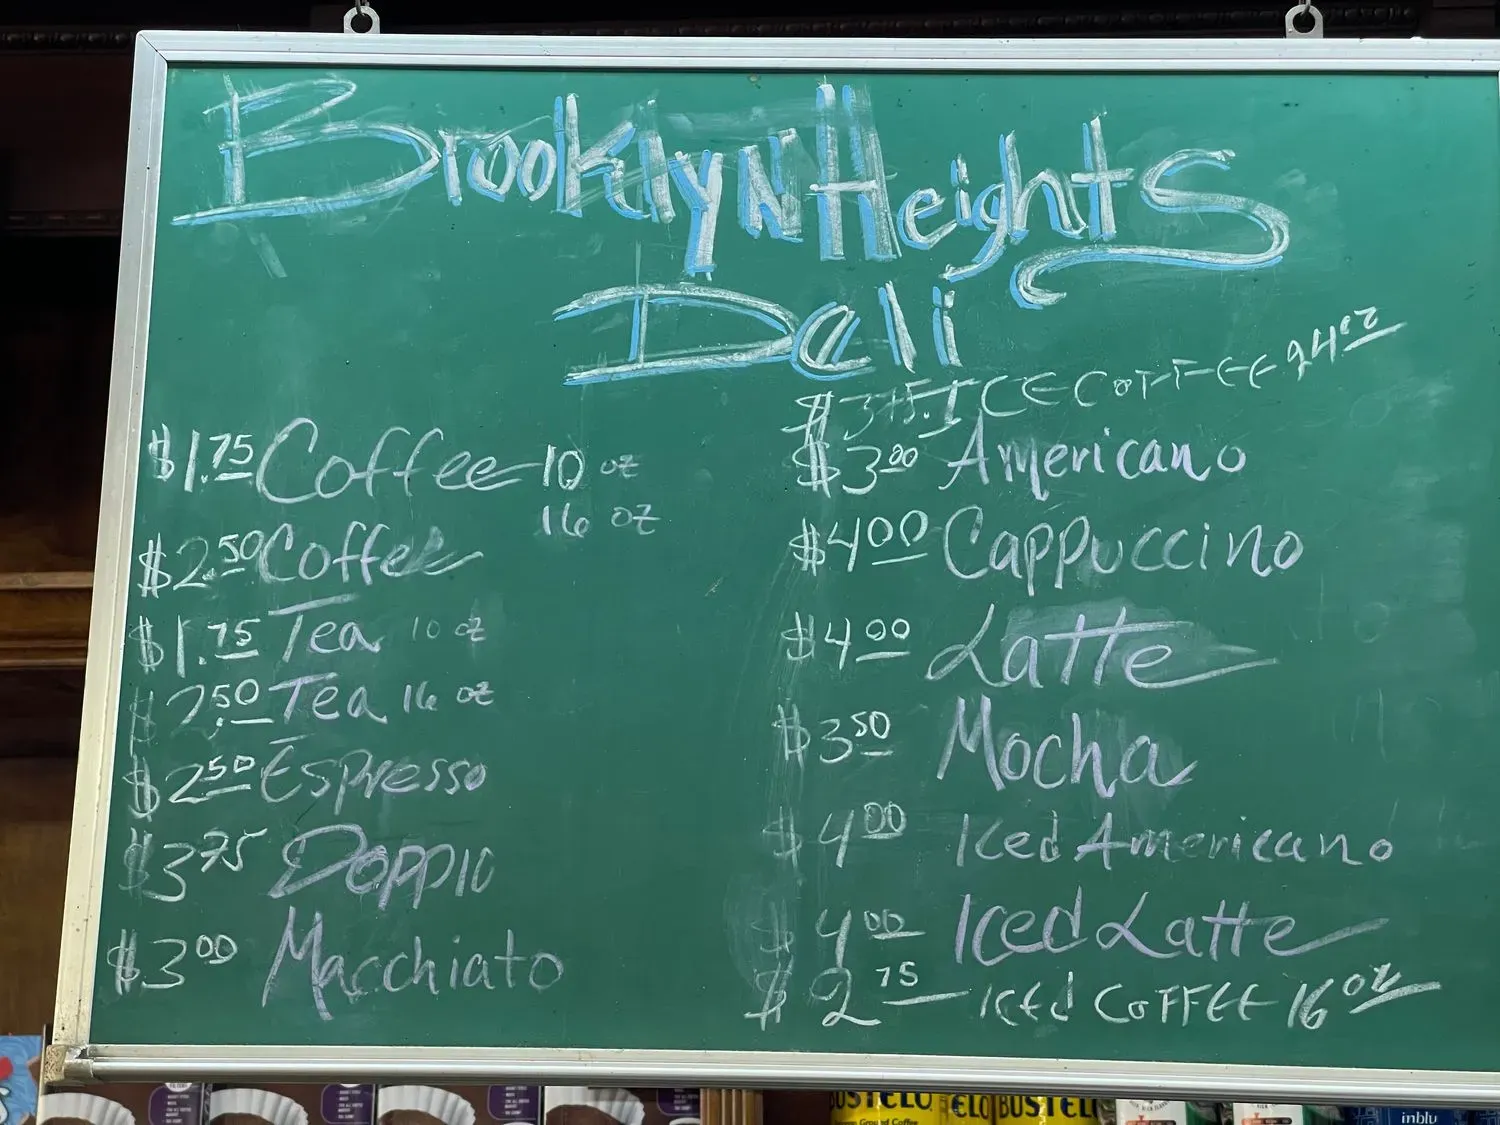 Brooklyn Heights
Deli
$1.75 Coffee 10 oz
16 oz
$2.50 Coffee
$1.75 Tea 10 oz
$2.50 Tea 16 oz
$2.50 Espresso
$3.75 Doppio
$3.00 Macchiato
ICE COFFEE 24oz
$3.00 Americano
$4.00 Cappuccino
$4.00 Latte
$3.50 Mocha
$4.00 Iced Americano
$4.00 Iced Latte
$2.75 ICED COFFEE 16oz
BUSTELO
Ground Coffee
ELO
BUSTEL